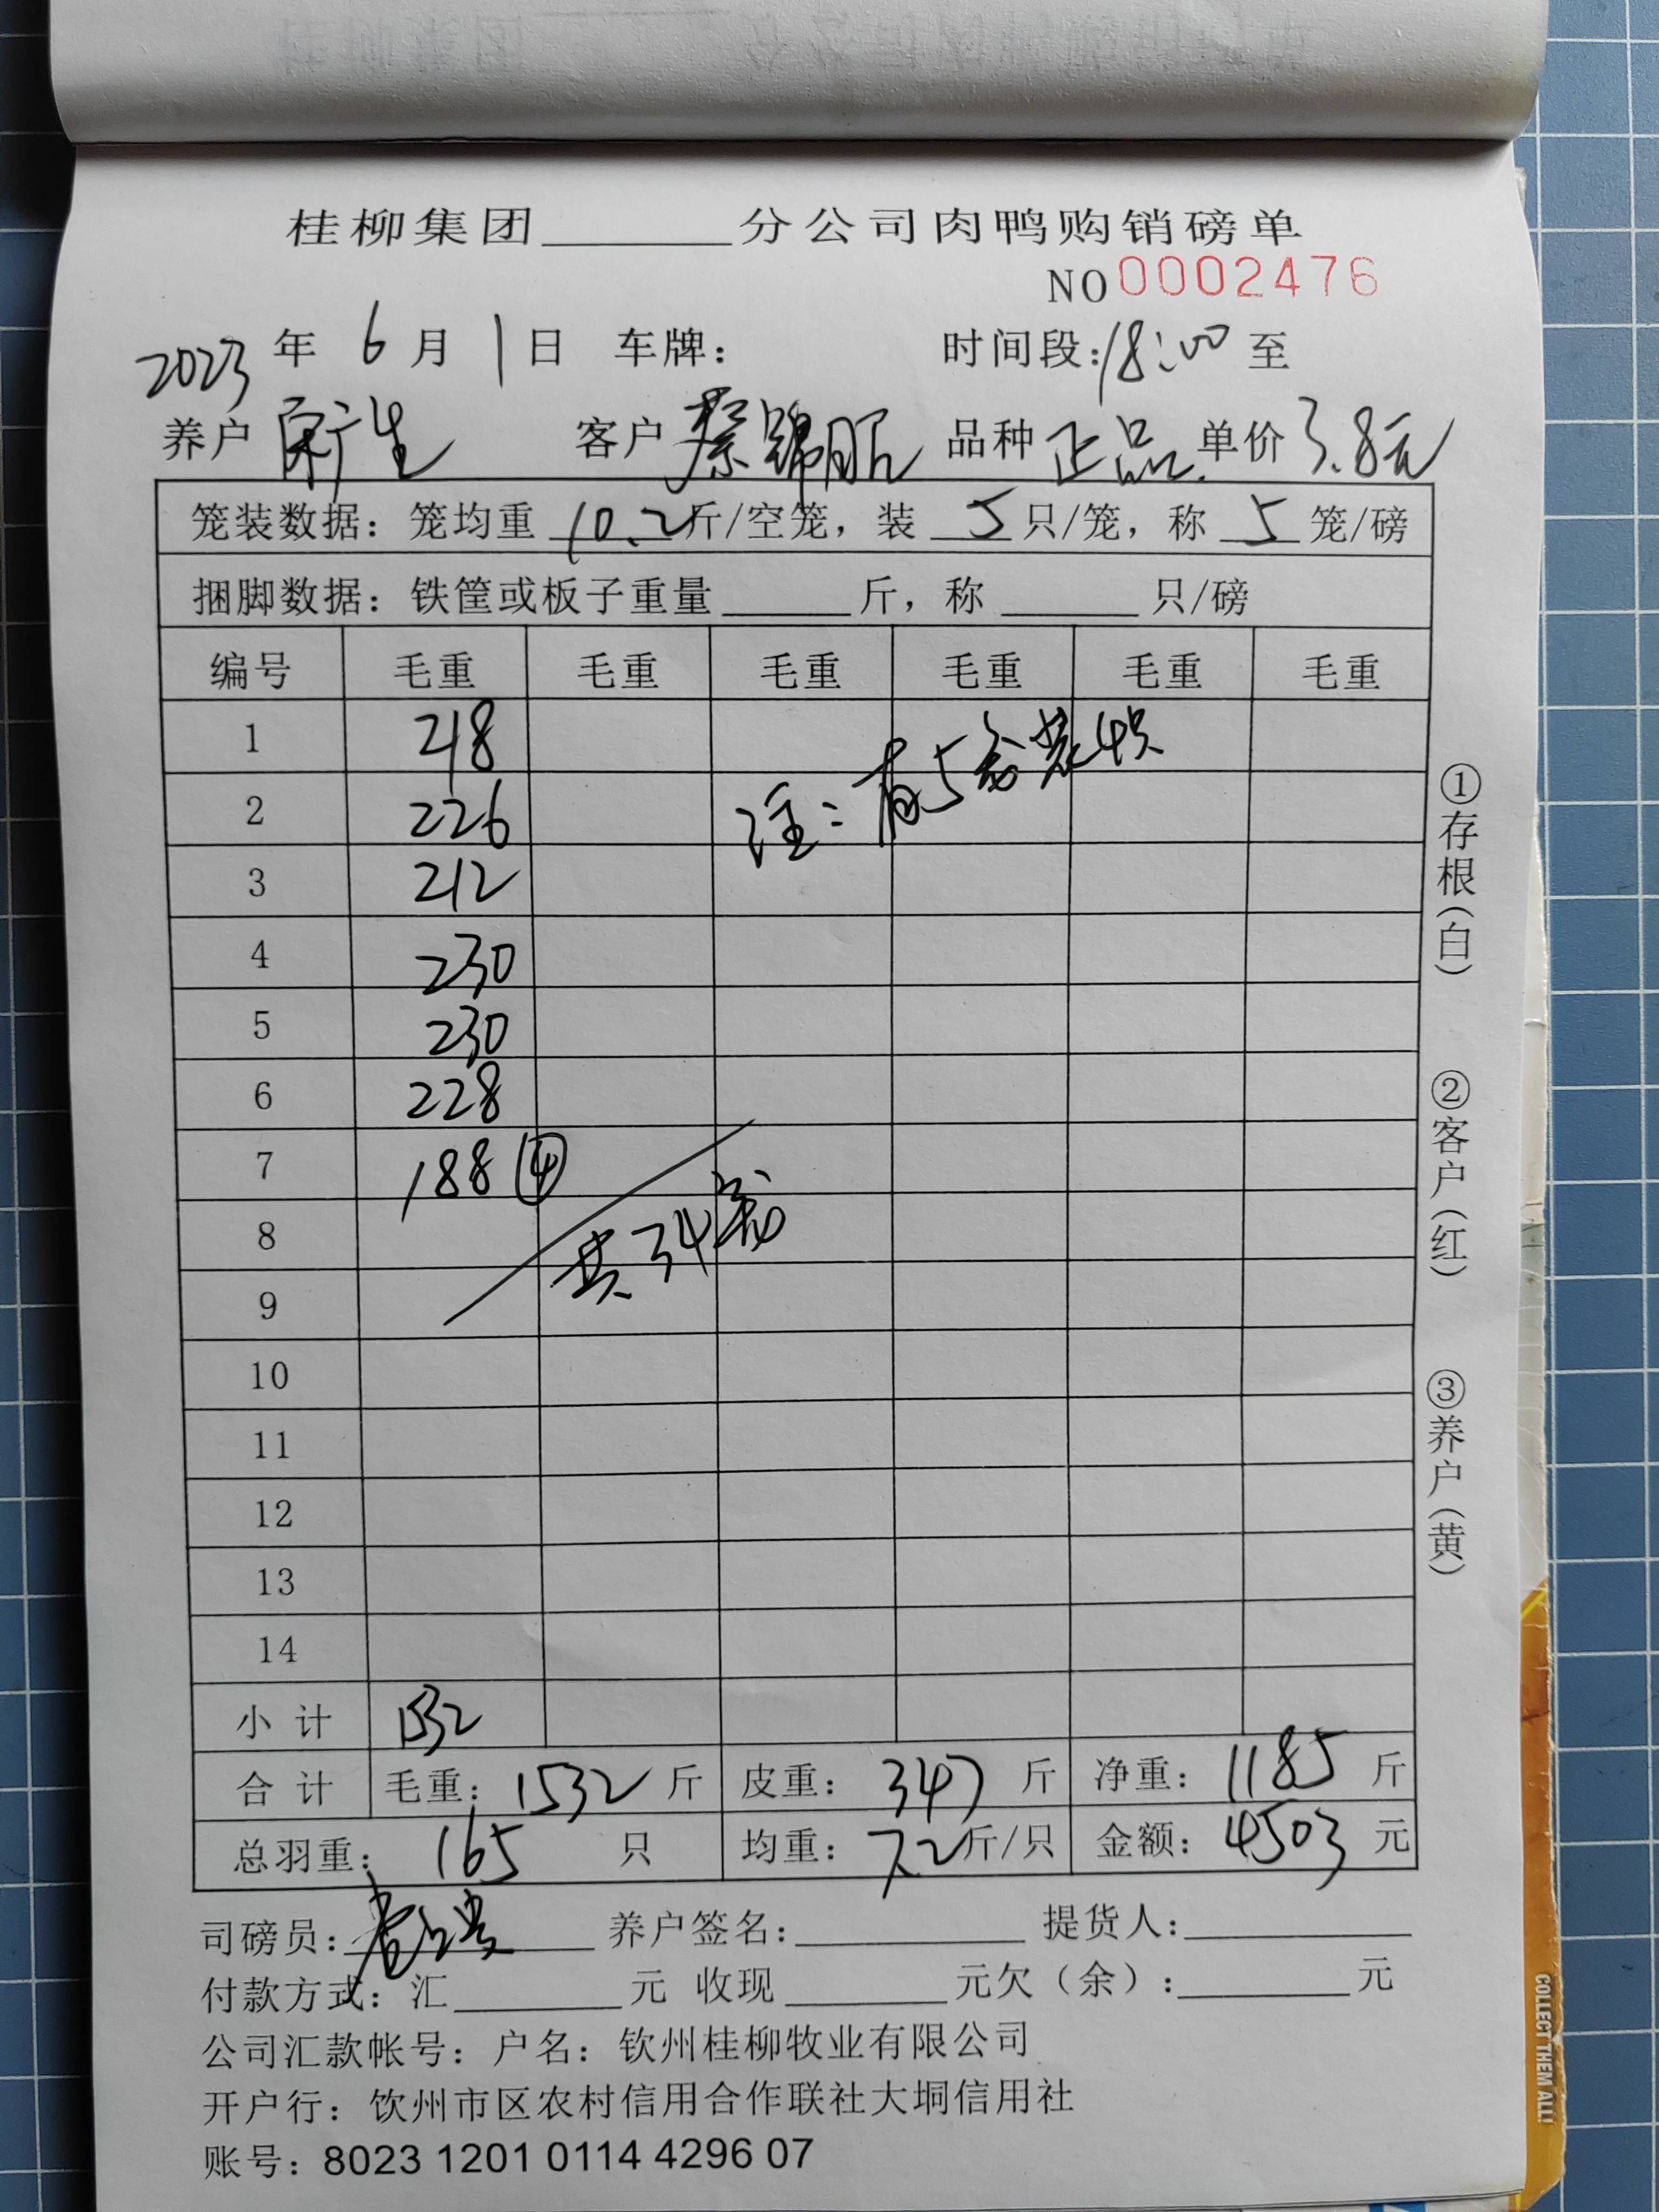 桂柳集团______分公司肉鸭购销磅单
NO 0002476
2023年 6月 1日 车牌: 时间段:18:00至
养户 生 客户 蔡锦 品种 正品 单价 3.8元
笼装数据: 笼均重 10.2 斤/空笼, 装 5 只/笼, 称 5 笼/磅
捆脚数据: 铁筐或板子重量______斤, 称______只/磅
编号 毛重 毛重 毛重 毛重 毛重 毛重
1 218
注: 有5笼装4只
2 226
3 212
4 230
5 230
6 228
7 188 ④
共34笼
8
9
10
11
12
13
14
小计 1532
合计 毛重: 1532 斤 皮重: 347 斤 净重: 1185 斤
总羽重: 165 只 均重: 7.2斤/只 金额: 4503 元
司磅员: 养户签名:______ 提货人:______
付款方式: 汇______元 收现______元欠(余):______元
公司汇款帐号: 户名: 钦州桂柳牧业有限公司
开户行: 饮州市区农村信用合作联社大垌信用社
账号: 8023 1201 0114 4296 07
①存根(白)
②客户(红)
③养户(黄)
COLLECT THEM ALL!